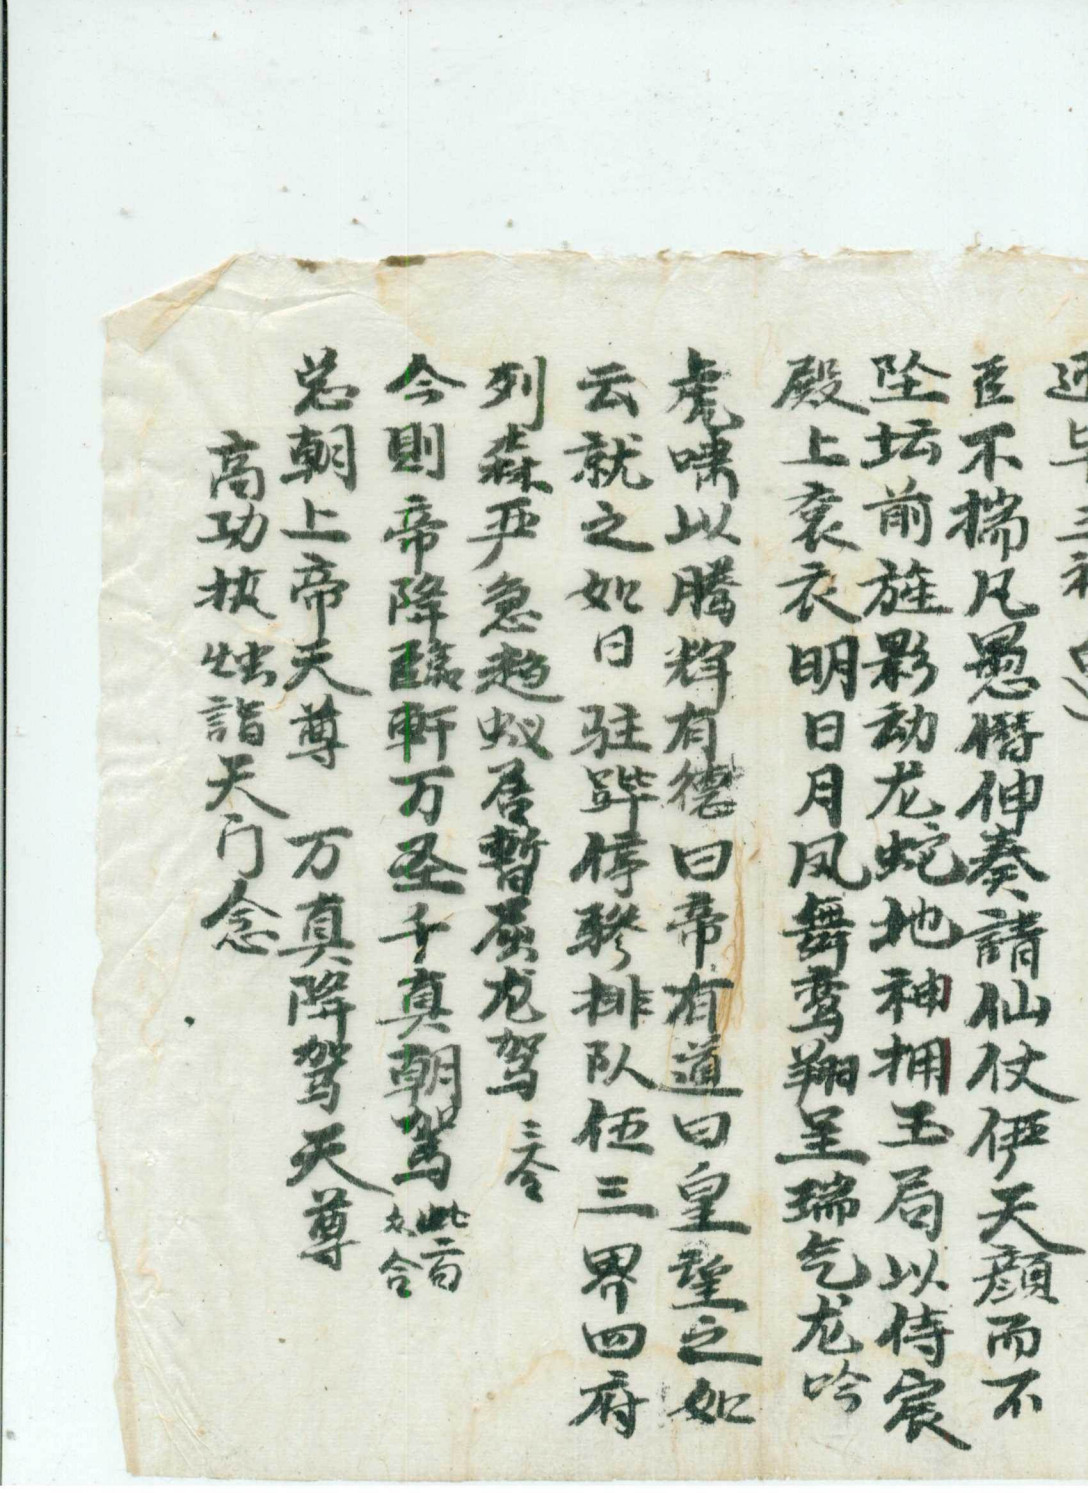 臣不揣凡愚僭伸奏請仙仗伊天顔而不
坠坛前旌影动龙蛇地神拥玉局以侍宸
殿上衮衣明日月凤舞鸾翔呈瑞气龙吟
虎啸以腾辉有德曰帝有道曰皇望之如
云就之如日驻跸停骖排队伍三界四府
列森严急趋蚁居暫屈龙驾 三合
今則帝降臨軒万圣千真朝驾 此二旬
合
总朝上帝天尊 万真降驾天尊
高功执 詣天门念